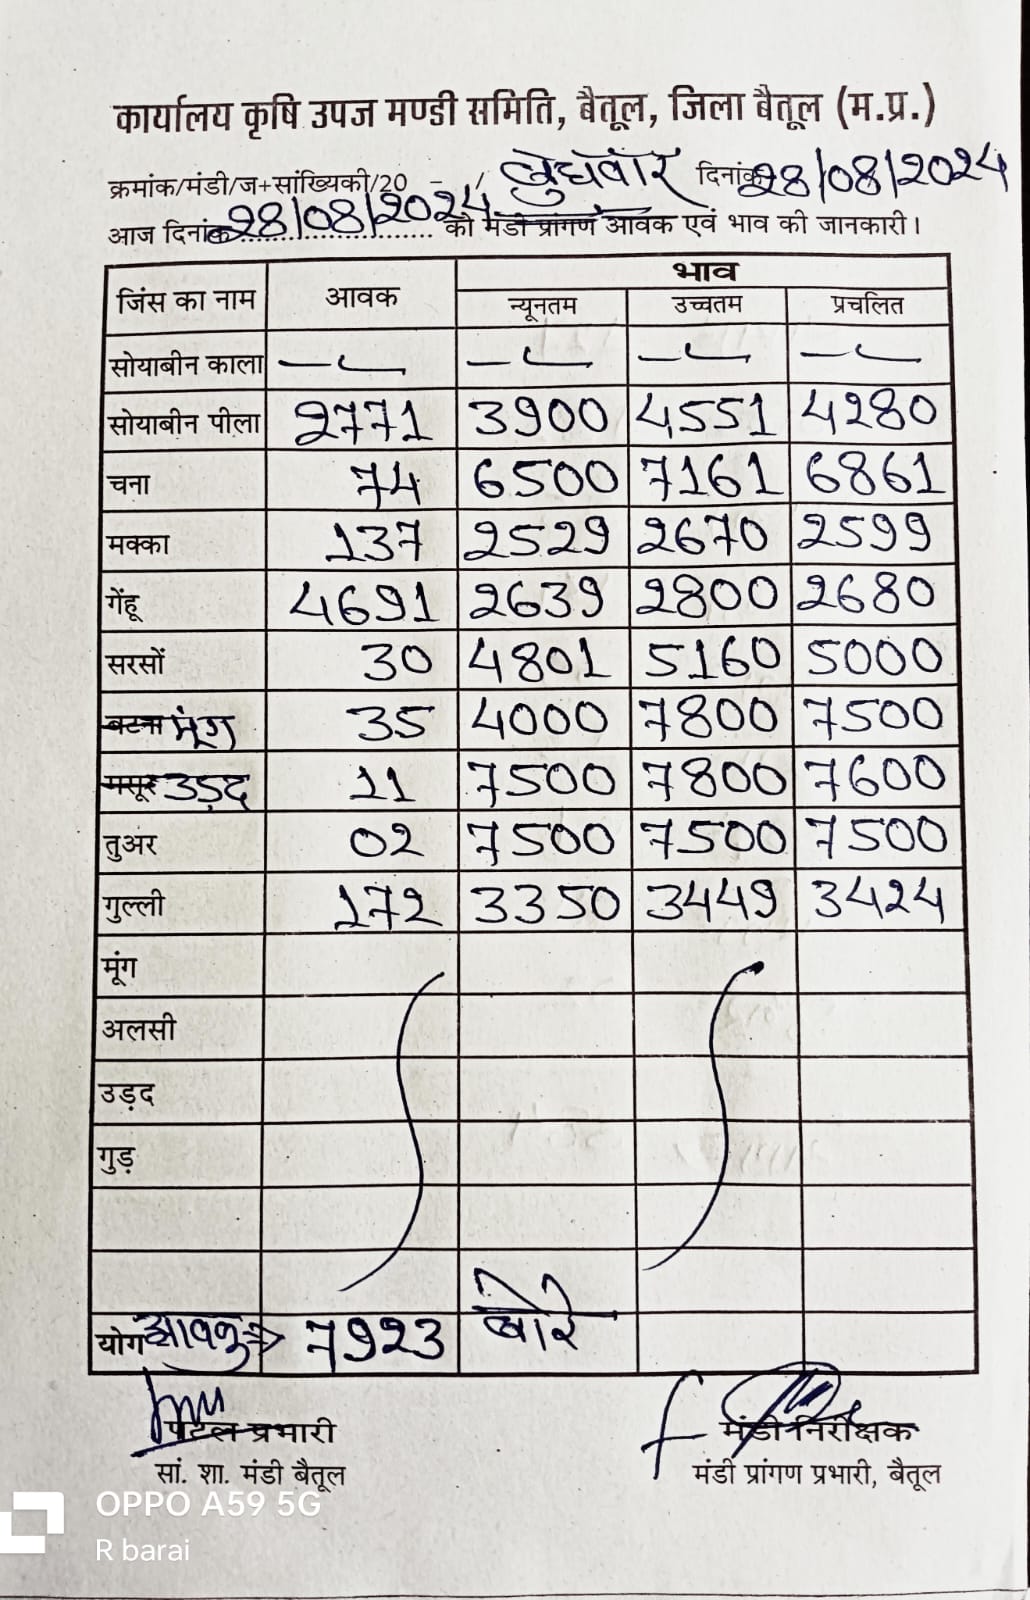 कार्यालय कृषि उपज मण्डी समिति, बैतूल, जिला बैतूल (म.प्र.)
क्रमांक/मंडी/ज+सांख्यिकी/20 - / बुधवार दिनांक 28/08/2024
आज दिनांक 28/08/2024 को मंडी प्रांगण आवक एवं भाव की जानकारी।
जिंस का नाम आवक भाव
न्यूनतम उच्चतम प्रचलित
सोयाबीन काला — — — —
सोयाबीन पीला 2771 3900 4551 4280
चना 74 6500 7161 6861
मक्का 137 2529 2670 2599
गेंहू 4691 2639 2800 2680
सरसों 30 4801 5160 5000
बटना मूंग 35 4000 7800 7500
मसूर उड़द 11 7500 7800 7600
तुअर 02 7500 7500 7500
गुल्ली 172 3350 3449 3424
मूंग
अलसी
उड़द
गुड़
योग आवक⇒ 7923 बोरे
पटल प्रभारी
सां. शा. मंडी बैतूल
मंडी निरीक्षक
मंडी प्रांगण प्रभारी, बैतूल
OPPO A59 5G
R barai